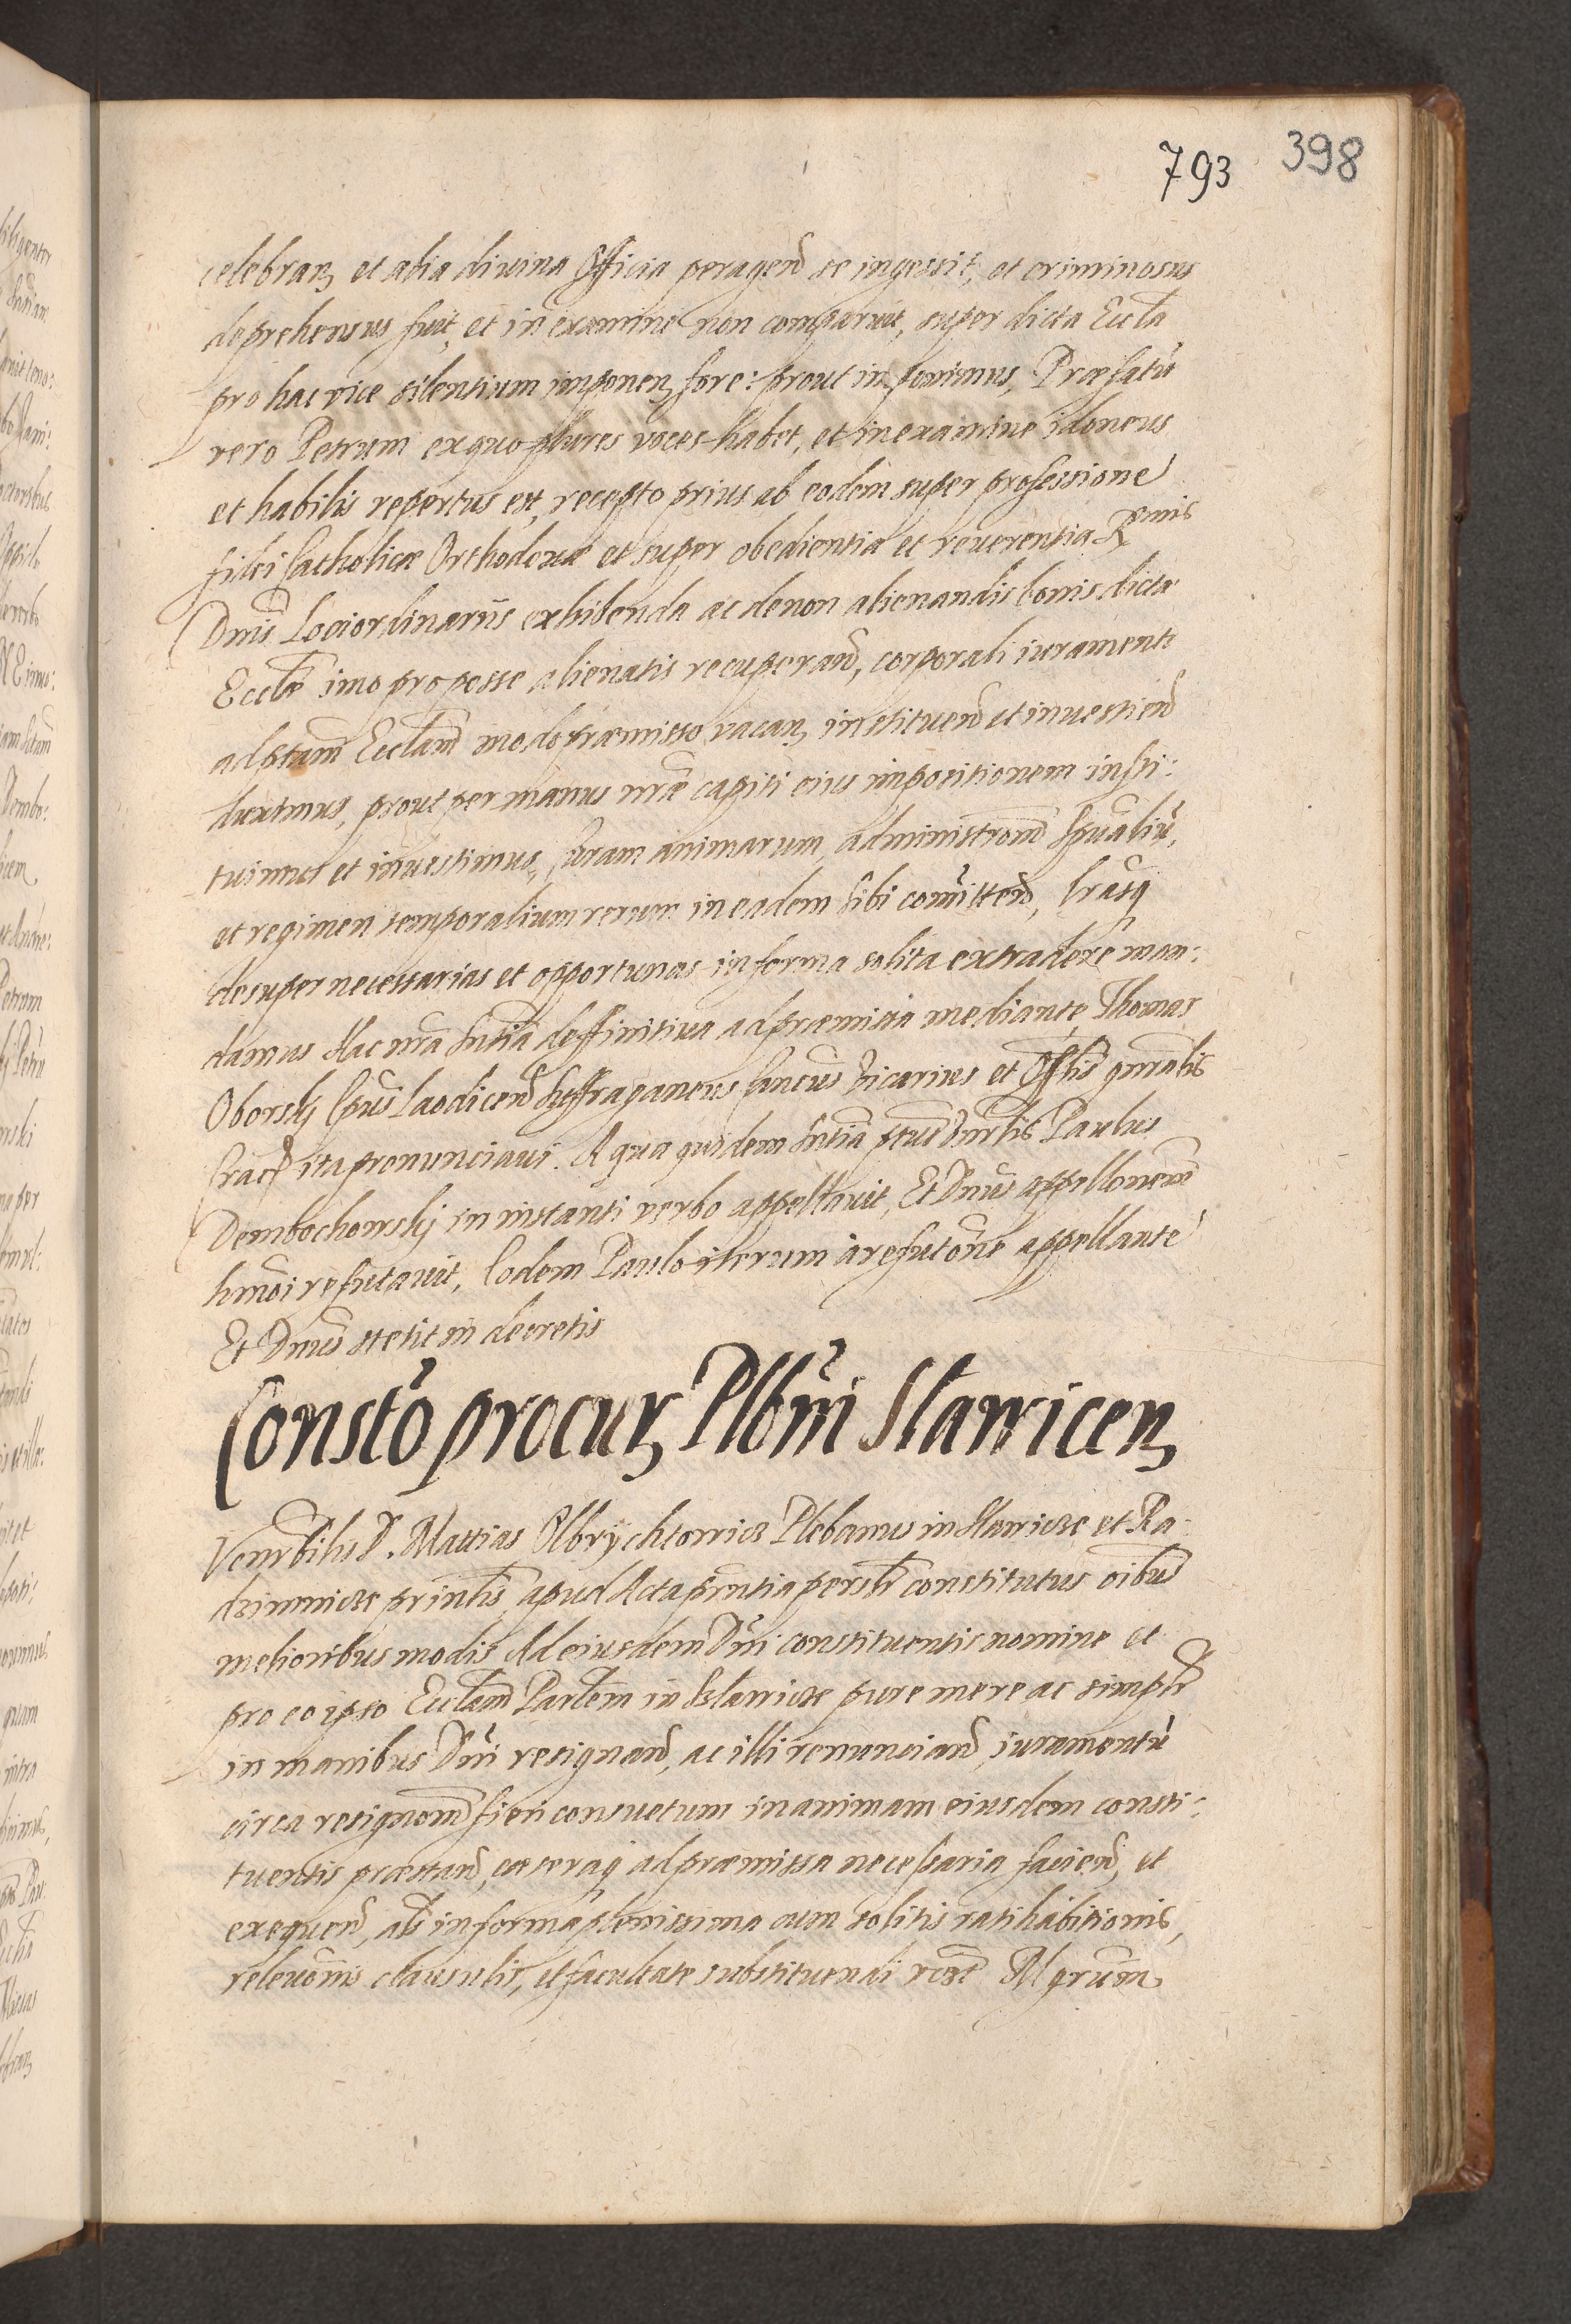 793 398
celebran et alia diuina Officia peragend se ingessit, et criminosus
deprehensus fuit, et in examine non comparuit, super dicta Eccla
pro hac vice silentium imponen fore: prout imponimus, Præfatu
vero Petrum ex quo plures voces habet, et in examine idoneus
et habilis repertus est, recepto prius ab eodem super professione
fidei Catholicæ Orthodoxæ et super obedientia et reuerentia Rmis
Dnis Lociordinariis exhibenda ac de non alienandis bonis dictæ
Ecclæ imo pro posse alienatis recuperand, corporali iuramento
ad ptam Ecclam modo præmisso vacan instituend et inuestiend
duximus, prout per manus nræ capiti eius impositionem insti:
tuimus et inuestimus, Curam animarum, administrom Spualiu,
et regimen temporalium rerum in eadem sibi comittend, lrasq
desuper necessarias et opportunas in forma solita extradere man:
damus Hac nra sntia deffinitiua ad præmissa mediante, Thomas
Oborsky Epus Laodicen Suffraganeus Cancus Vicarius et Offlis gnralis
Crac ita pronunciaui. A qua quidem sntia ptus Dnrlis Paulus
Dembochowsky in instanti verbo appellauit, Et Dnus appellonem
hmoi refutauit, Eodem Paulo iterum à refutone appellante
Et Dnus stetit in decretis
Consto procur Plbni Slawicen
Venrbilis D. Mattias Olbrychtowicz Plebanus in Slawicze et Ra
dzimicze prinlis apud Acta prntia persolr constitutus oibus
melioribus modis Ad eiusdem Dni constituentis nomine et
pro eo ipso Ecclam Parlem in Slawicze pure mere ac simplr
in manibus Dni resignand, ac illi renunciand, iuramentu
circa resignom fieri consuetum in animam eiusdem consti:
tuentis præstand, cæteraq ad præmissa necessaria faciend, et
exequend, als in forma plenissima cum solitis ratihabitionis,
releuonis clausulis, et facultate substituendi Mgrum